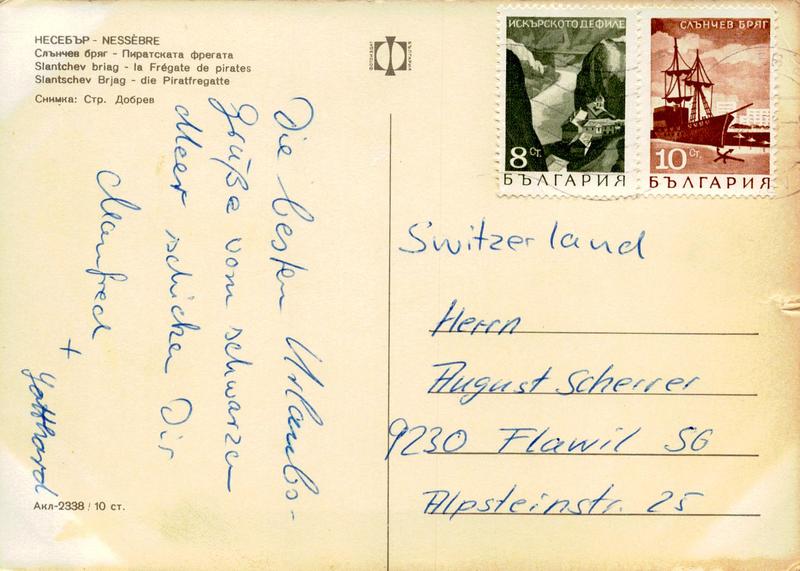 НЕСЕБЪР - NESSÈBRE
Слънчев бряг - Пиратската фрегата
Slantchev briag - la Frégate de pirates
Slantschev Brjag - die Piratfregatte
Снимка: Стр. Добрев
Die besten Urlaubs-
grüße vom schwarzen
Meer schicken Dir
Manfred
+ Gotthard
Акл-2338 / 10 ст.
ФОТОИЗДАТ
БЪЛГАРИЯ
ИСКЪРСКОТО ДЕФИЛЕ
8 СТ.
БЪЛГАРИЯ
СЛЪНЧЕВ БРЯГ
10 СТ.
БЪЛГАРИЯ
Switzerland
Herrn
August Scherrer
9230 Flawil SG
Alpsteinstr. 25